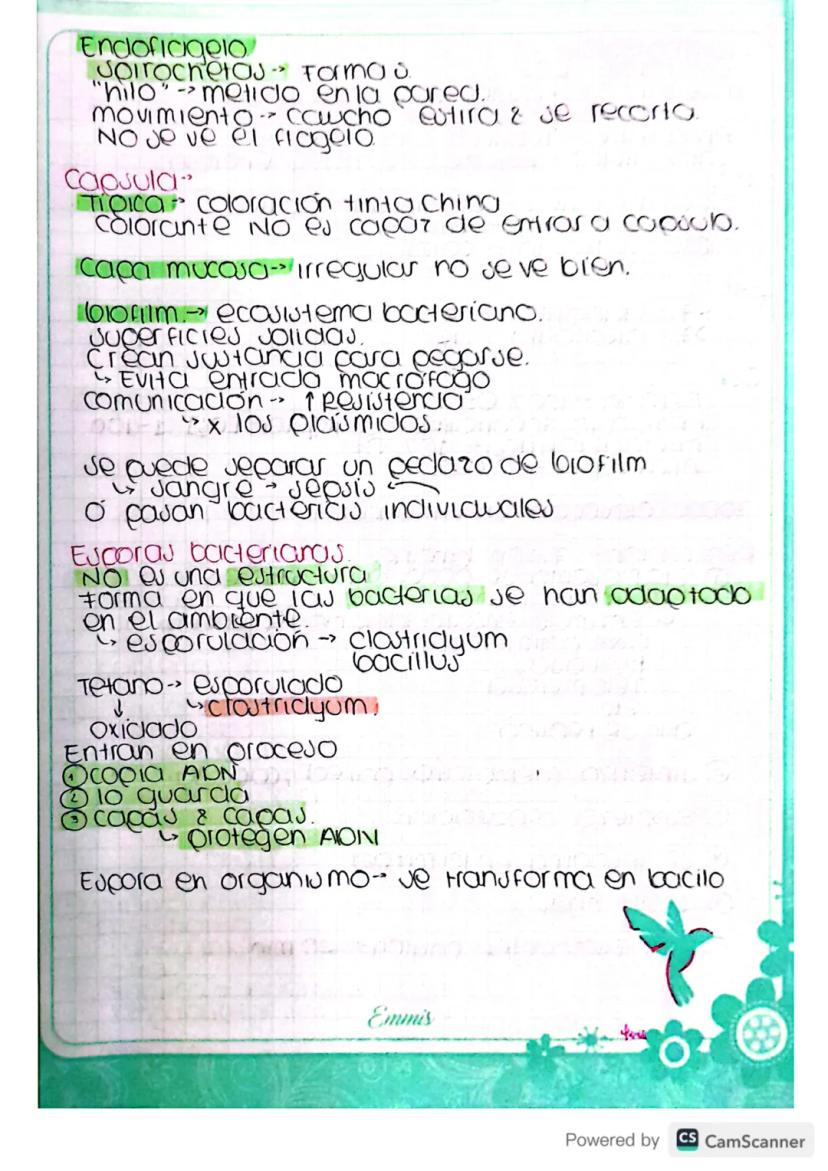 Endoflagelo
Spirochetas → forma S.
"hilo" → metido en la pared.
movimiento → caucho estira & se recorta.
No se ve el flagelo.
Capsula→
Tipica → coloración tinta china
colorante NO es capaz de entrar a capsula.
Capa mucosa → irregular no se ve bien.
biofilm. → ecosistema bacteriano.
superficies solidas.
Crean sustancia para pegarse.
↳ Evita entrada macrófago
comunicación → ↑ Resistencia
↳ x los plásmidos
se puede separar un pedazo de biofilm
↳ sangre → sepsis ←
ó pasan bacterias individuales
Esporas bacterianas.
NO es una estructura
Forma en que las bacterias se han adaptado
en el ambiente.
↳ esporulación → clostridyum
bacillus
Tetano → esporulado
↓ ↳ clostridyum.
oxidado
Entran en proceso
① copia ADN
② lo guarda
③ capas & capas.
↳ protegen ADN
Espora en organismo → se transforma en bacilo
Emmis
Powered by CS CamScanner